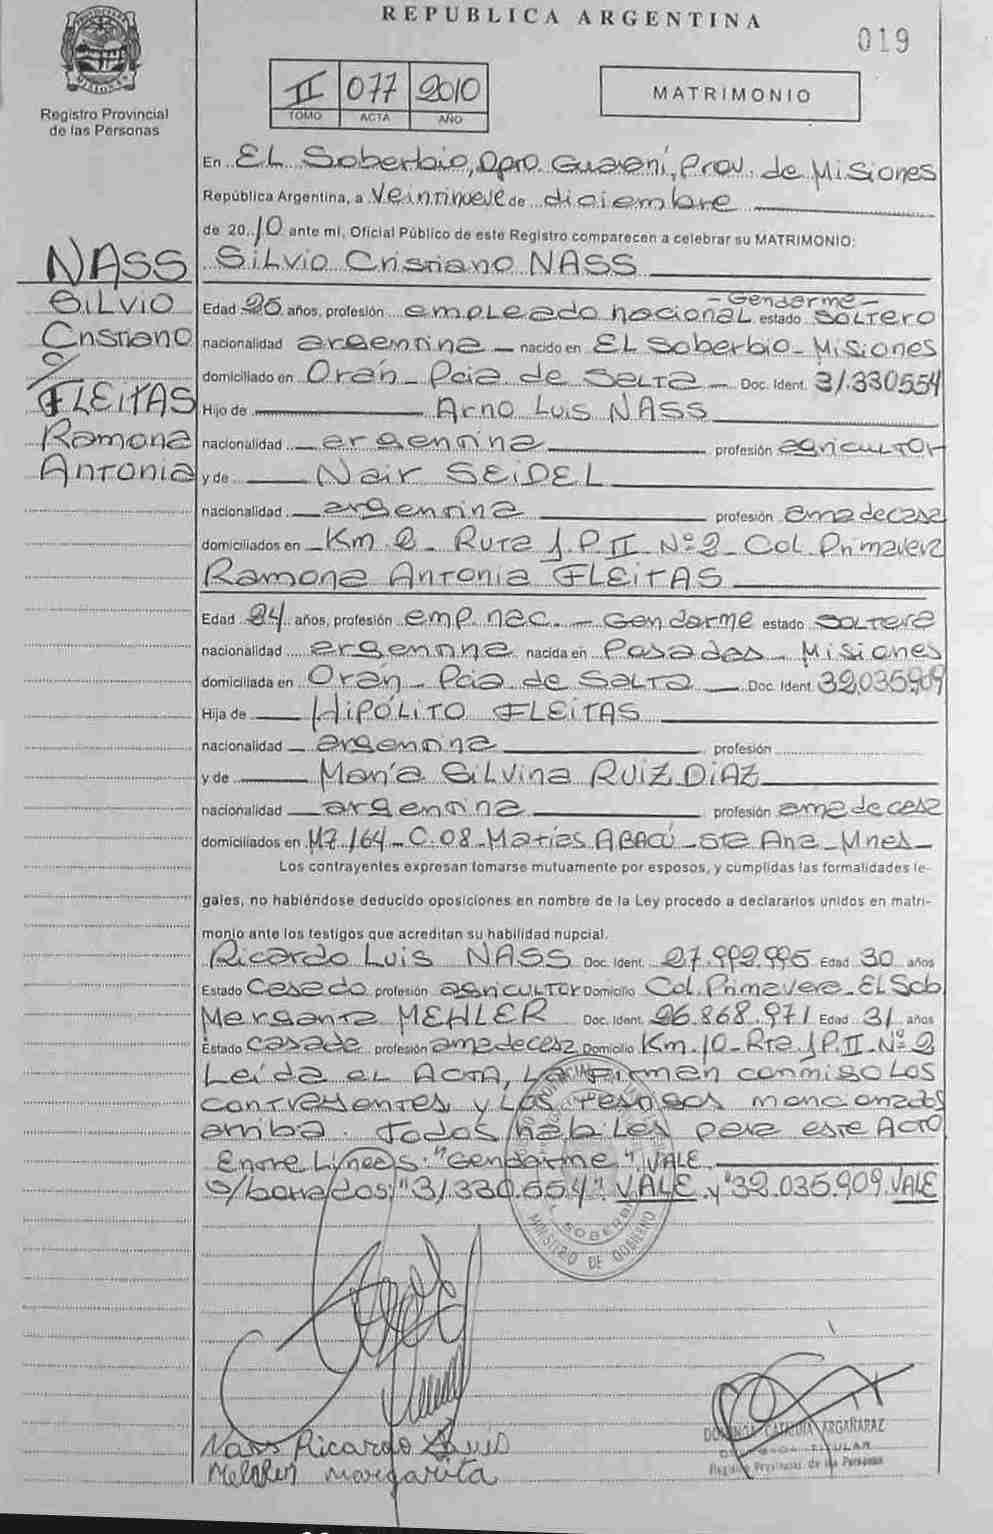 REPUBLICA ARGENTINA
019
Registro Provincial
de las Personas
II 077 2010
TOMO ACTA AÑO
MATRIMONIO
En EL Soberbio, Dpto. Guaraní, Prov. de Misiones
República Argentina, a Veintinueve de diciembre
de 2010 ante mi, Oficial Público de este Registro comparecen a celebrar su MATRIMONIO:
NASS
Silvio
Cristiano
FLEITAS
Ramona
Antonia
Silvio Cristiano NASS
- Gendarme -
Edad 26 años, profesión empleado nacional estado SOLTERO
nacionalidad argentina nacido en EL Soberbio - Misiones
domiciliado en Orán - Pcia de SALTA - Doc. Ident. 31.330.554
Hijo de Arno Luis NASS
nacionalidad argentina profesión agricultor
y de Nair SEIDEL
nacionalidad argentina profesión ama de casa
domiciliados en Km 2 - Ruta J.P.II Nº 2 - Col. Primavera
Ramona Antonia FLEITAS
Edad 24 años, profesión emp. nac. - Gendarme estado SOLTERA
nacionalidad argentina nacida en Posadas - Misiones
domiciliada en Orán - Pcia de SALTA - Doc. Ident. 32.035.909
Hija de HIPÓLITO FLEITAS
nacionalidad argentina profesión
y de María Silvina RUIZ DIAZ
nacionalidad argentina profesión ama de casa
domiciliados en MZ 164 - C. 08 - Matías ABACÚ - Sta Ana - Mnes -
Los contrayentes expresan tomarse mutuamente por esposos, y cumplidas las formalidades le-
gales, no habiéndose deducido oposiciones en nombre de la Ley procedo a declararlos unidos en matri-
monio ante los testigos que acreditan su habilidad nupcial.
Ricardo Luis NASS Doc. Ident. 27.992.995 Edad 30 años
Estado Casado profesión agricultor Domicilio Col. Primavera - EL Sob
Margarita MEHLER Doc. Ident. 26.868.971 Edad 31 años
Estado casada profesión ama de casa Domicilio Km. 10 - Rta J.P.II - Nº 2
Leída el ACTA, La firman conmigo Los
contrayentes, y Los testigos mencionados
arriba. Todos hábiles para este Acto
Entre Líneas: "Gendarme" VALE
S/borrados: "31.330.554" VALE y "32.035.909 VALE
SOBERBIO
MINISTERIO DE GOBIERNO
Nass Ricardo Luis
Mehler margarita
ARGAÑARAZ
TITULAR
Registro Provincial de las Personas